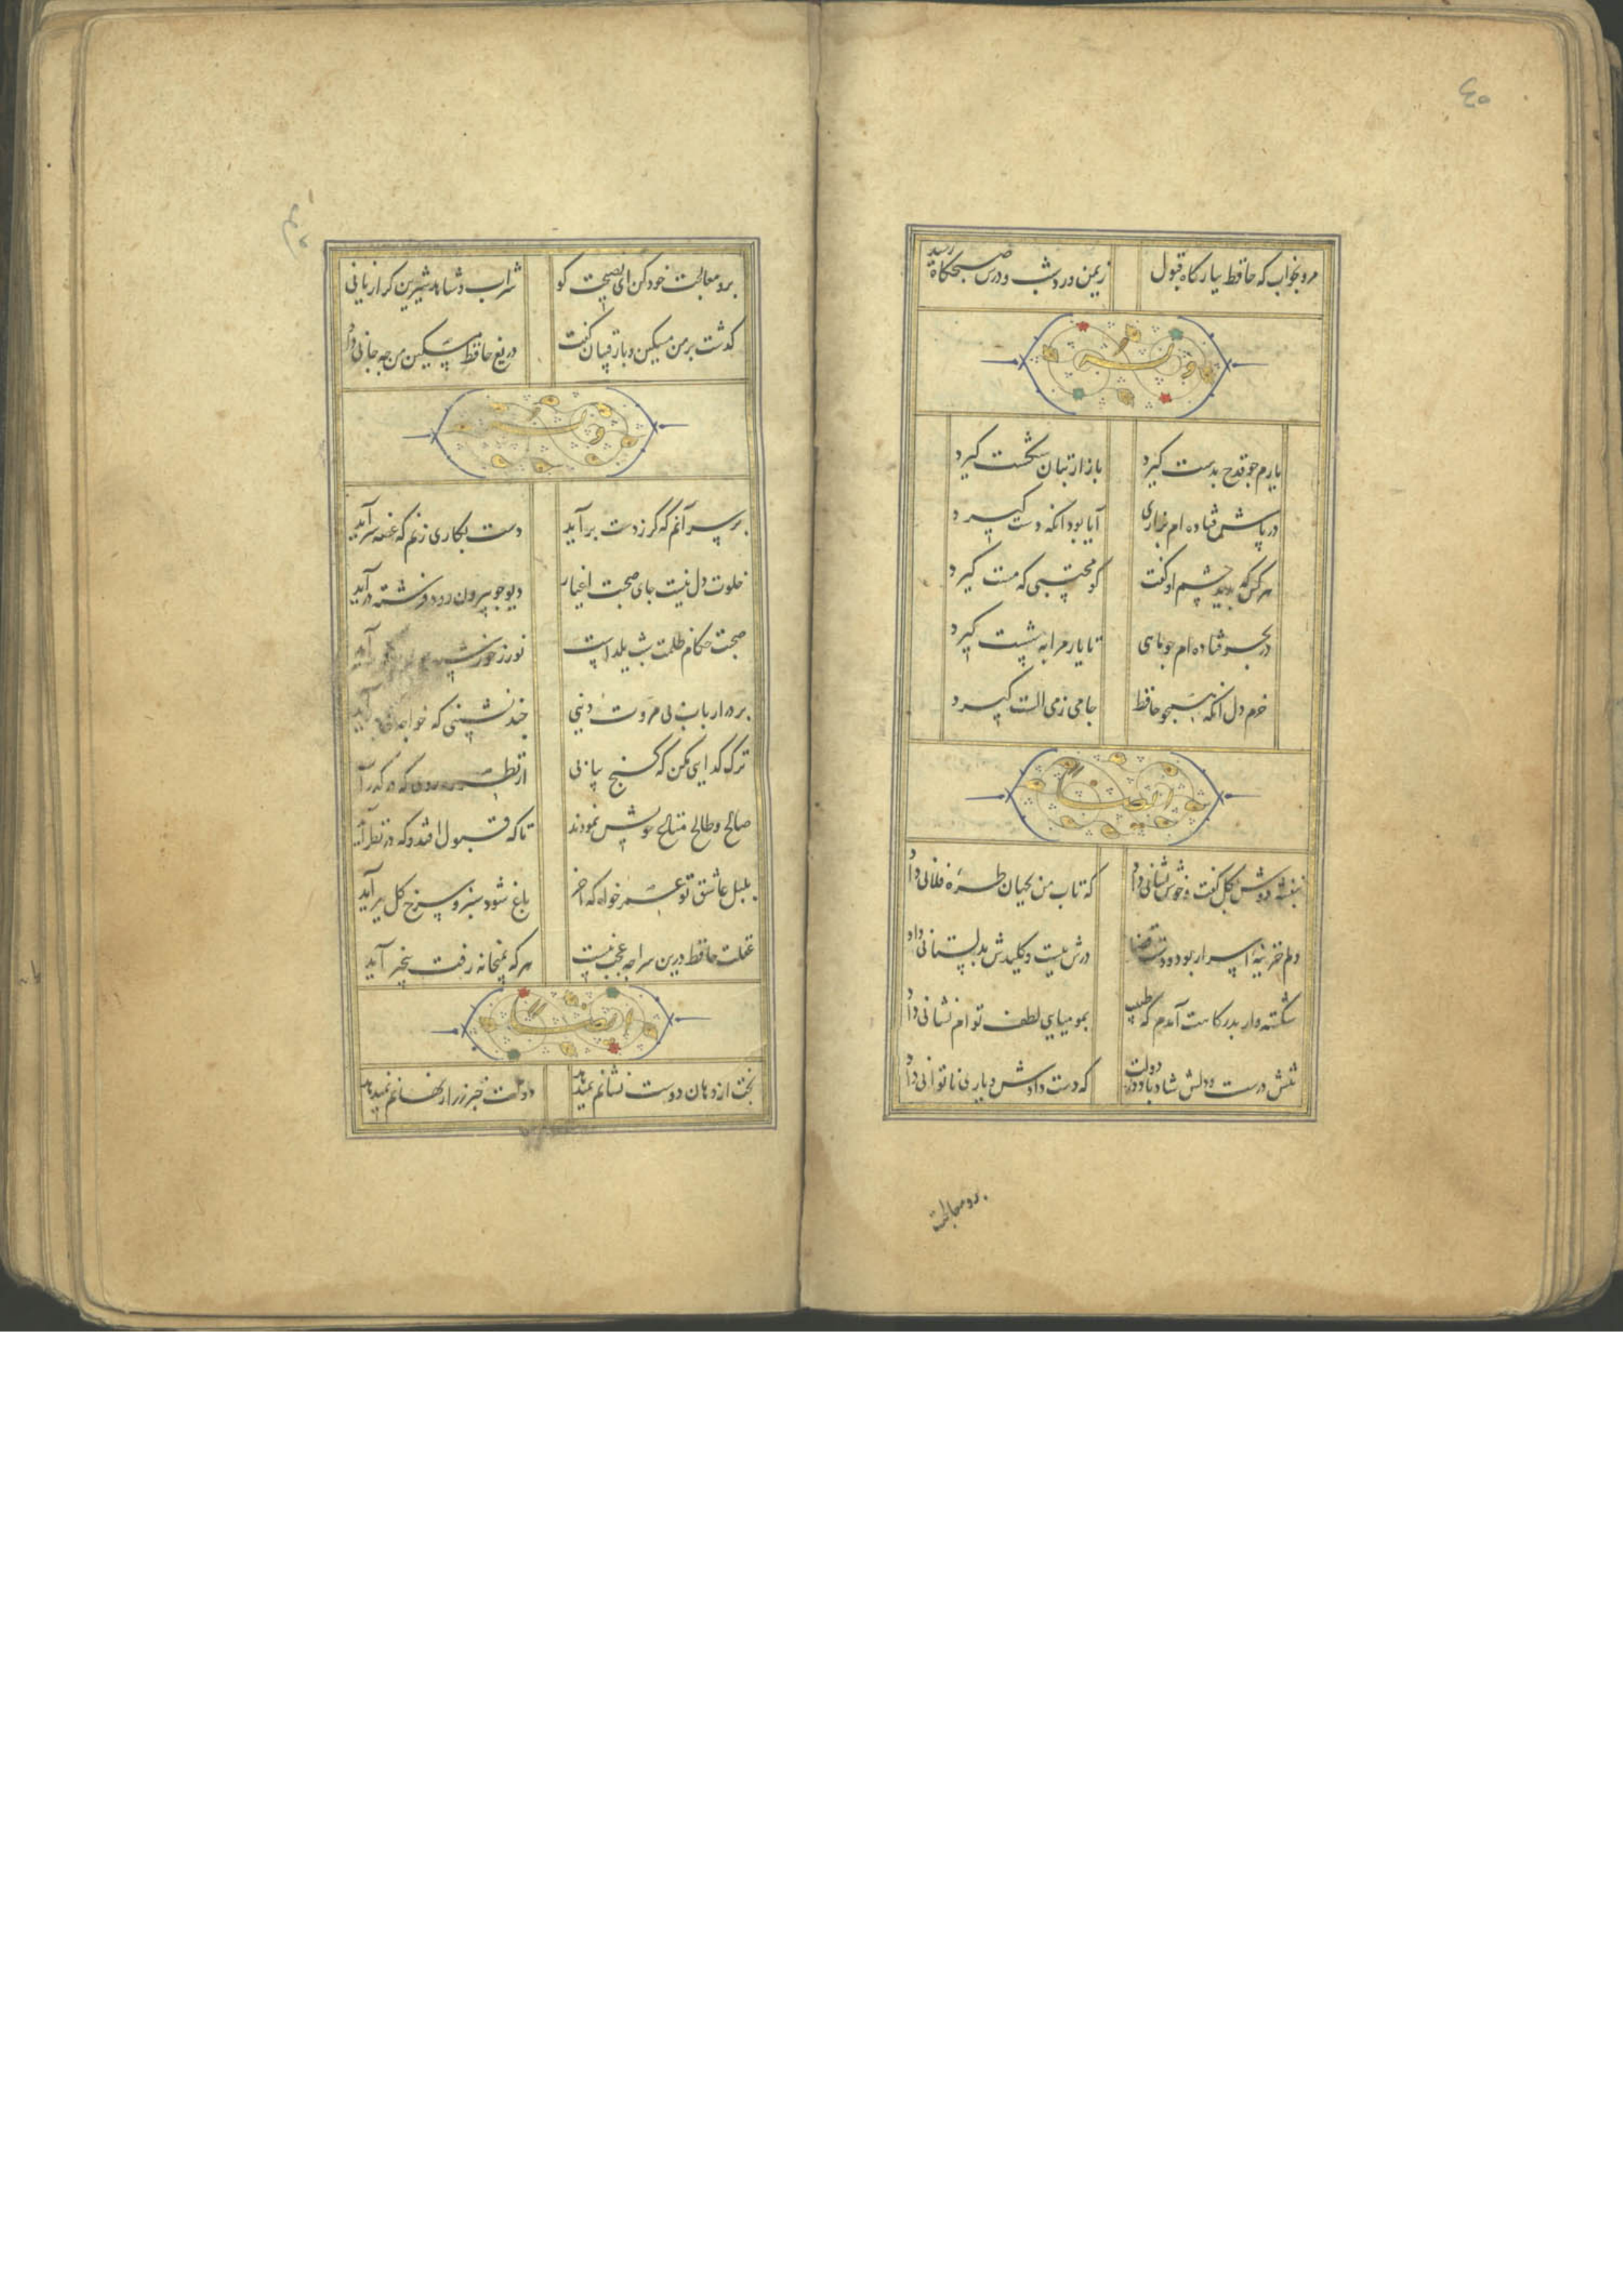 ٤٥
مرو بخواب که حافظ ببارکاه قبول
زیمن ورد شب و درس صبحکاه رسید
وله
یارم جو قدح بدست کیرد
بازار بتان شکست کیرد
در پاش فتاده ام بزاری
آیا بود انکه دست کیرد
هر کس که بدید چشم او کفت
کو محتسبی که مست کیرد
در بحر فتاده ام جو ماهی
تا یار مرا به شست کیرد
خرم دل انکه همجو حافظ
جامی ز می الست کیرد
ایضا
بنفشه دوش بکل کفت و خوش نشانی داد
که تاب من بجهان طره فلانی داد
دلم خزینه اسرار بود و دست قضا
درش ببست و کلیدش بدلستانی داد
شکسته وار بدرکاهت آمدم که طبیب
بمومیایی لطف توام نشانی داد
تنش درست و دلش شاد باد و دولت
که دست دادش و یاری ناتوانی داد
برو معالجت
برو معالجت خود کن ای نصیحت کو
شراب و شاهد شیرین کرا زیانی
کذشت بر من مسکین و با رقیبان کفت
دریغ حافظ مسکین من جه جانی داد
وله
بر سر آنم که کر ز دست بر آید
دست بکاری زنم که غصه سر آید
خلوت دل نیست جای صحبت اغیار
دیو جو بیرون رود فرشته در آید
صحبت حکام ظلمت شب یلداست
نور ز خورشید آید
بر در ارباب بی مروت دنیی
جند نشینی که خواجه آید
ترک کدایی مکن که کنج بیابی
از نظر که در کذر آ
صالح و طالح متاع خویش نمودند
تا که قبول افتد و که در نظر آید
بلبل عاشق تو عمر خواه که اخر
باغ شود سبز و سرخ کل ببر آید
غفلت حافظ درین سراجه عجب نیست
هر که بمیخانه رفت بیخبر آید
ایضا
بخت از دهان دوست نشانم نمیدهد
دولت خبر ز راز نهانم نمیدهد